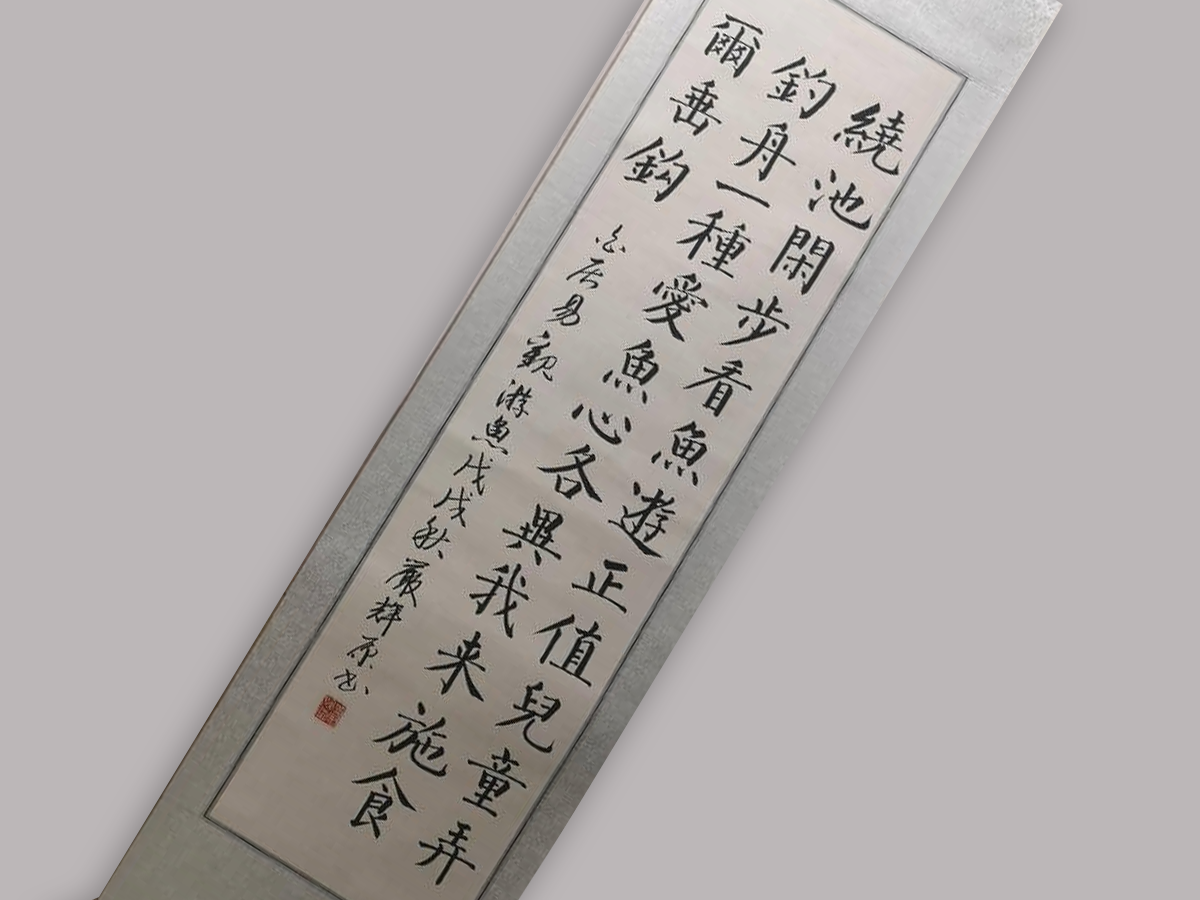 繞池閑步看魚遊正值兒童弄
釣舟一種愛魚心各異我来施食
爾垂鈎
白居易觀游魚戊戌秋嚴輝原书